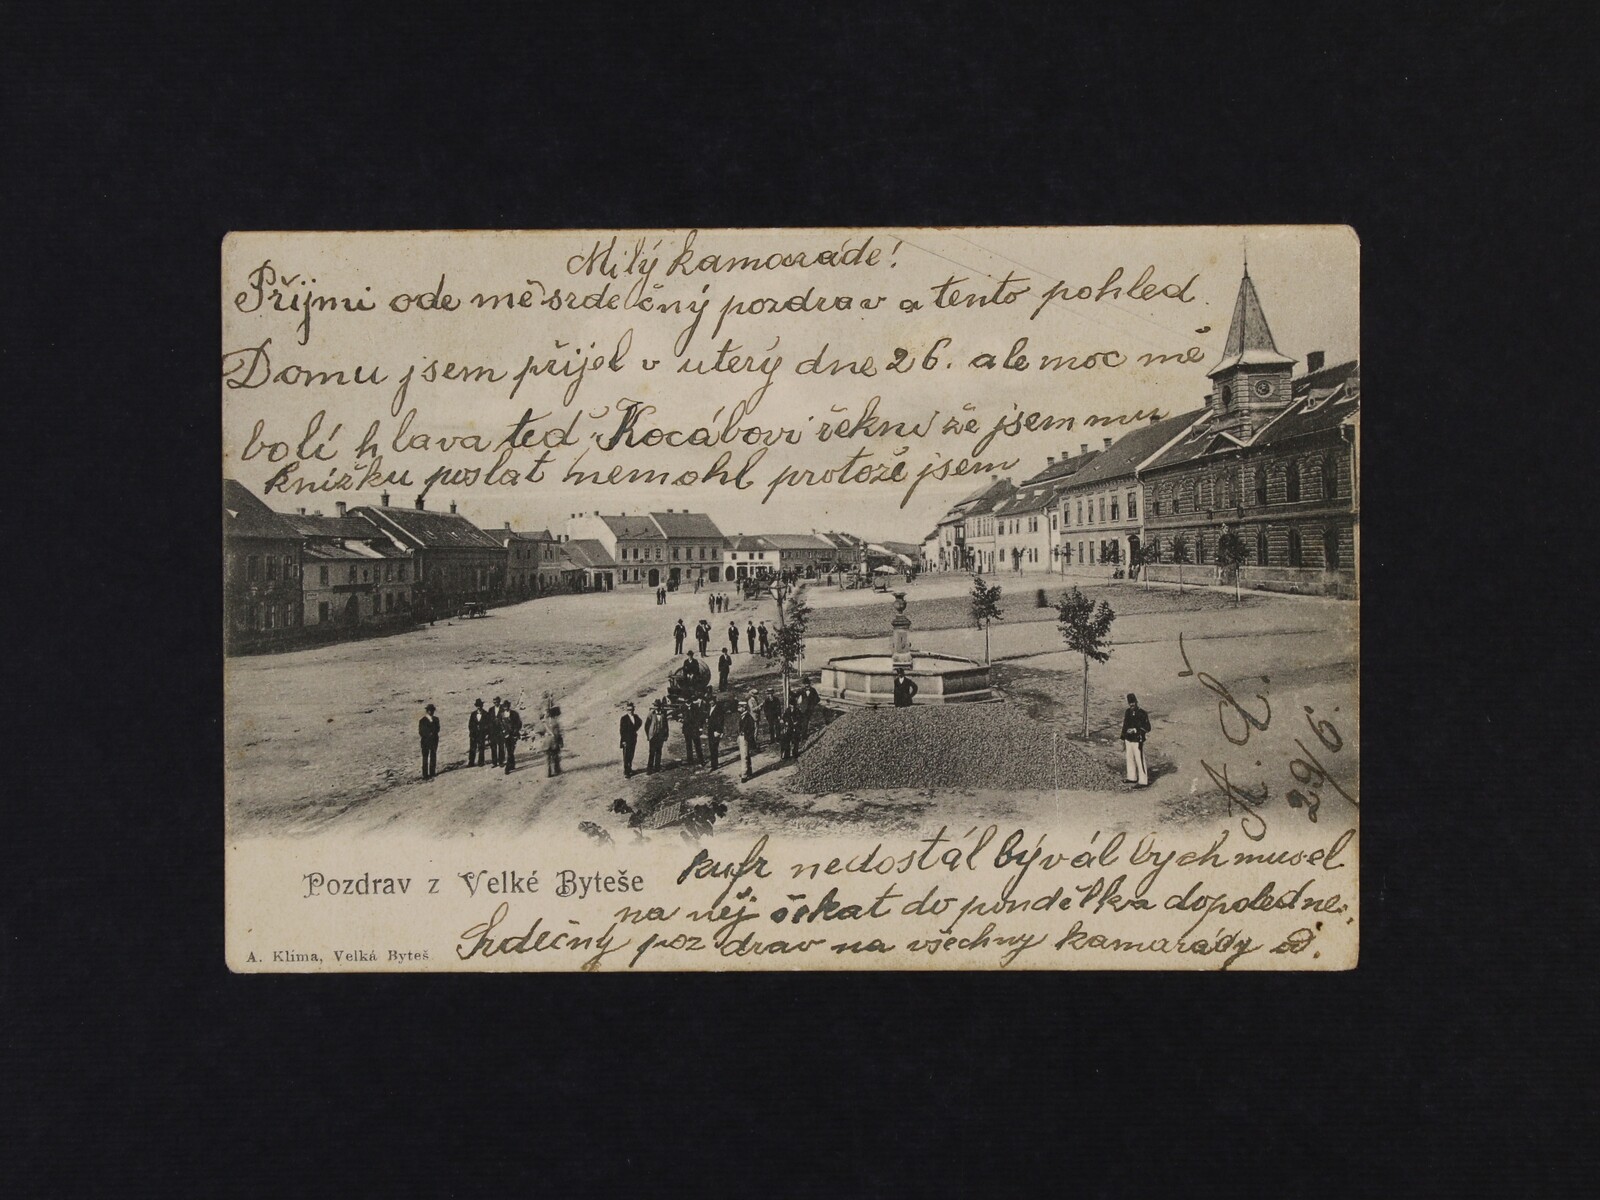 Milý kamaráde!
Přijmi ode mě srdečný pozdrav a tento pohled.
Domu jsem přijel v uterý dne 26. ale moc mě
bolí hlava teď Kocábovi řekni že jsem mu
knížku poslat nemohl protože jsem
kufr nedostál býval bych musel
na něj čekat do pondělka dopoledne.
Srdečný pozdrav na všechny kamarády
29/6.
Pozdrav z Velké Byteše
A. Klima, Velká Byteš